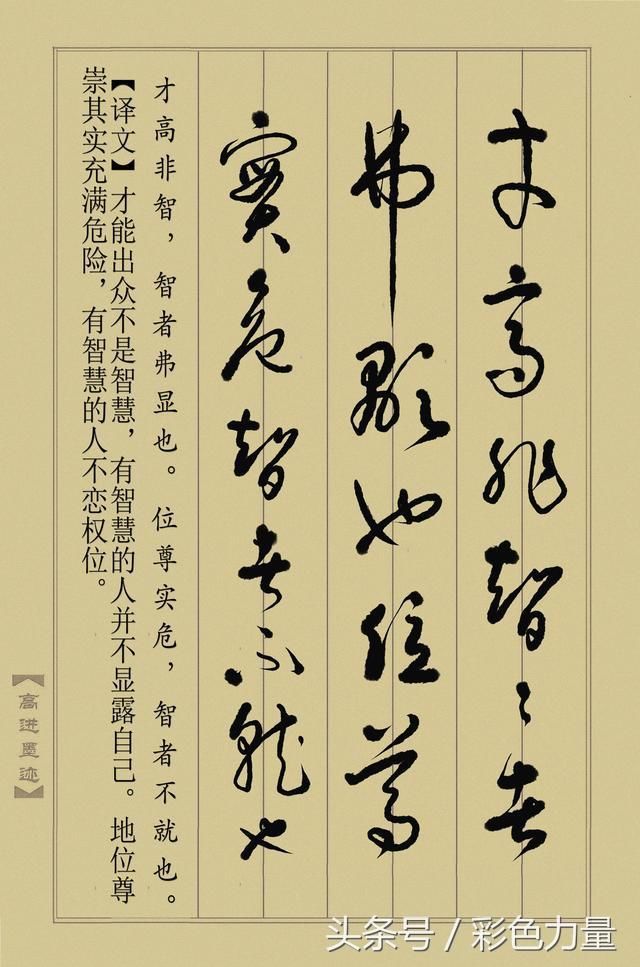 才高非智智者
弗显也位尊
实危智者不就也
才高非智，智者弗显也。位尊实危，智者不就也。
【译文】才能出众不是智慧，有智慧的人并不显露自己。地位尊
崇其实充满危险，有智慧的人不恋权位。
【高进墨迹】
头条号 / 彩色力量